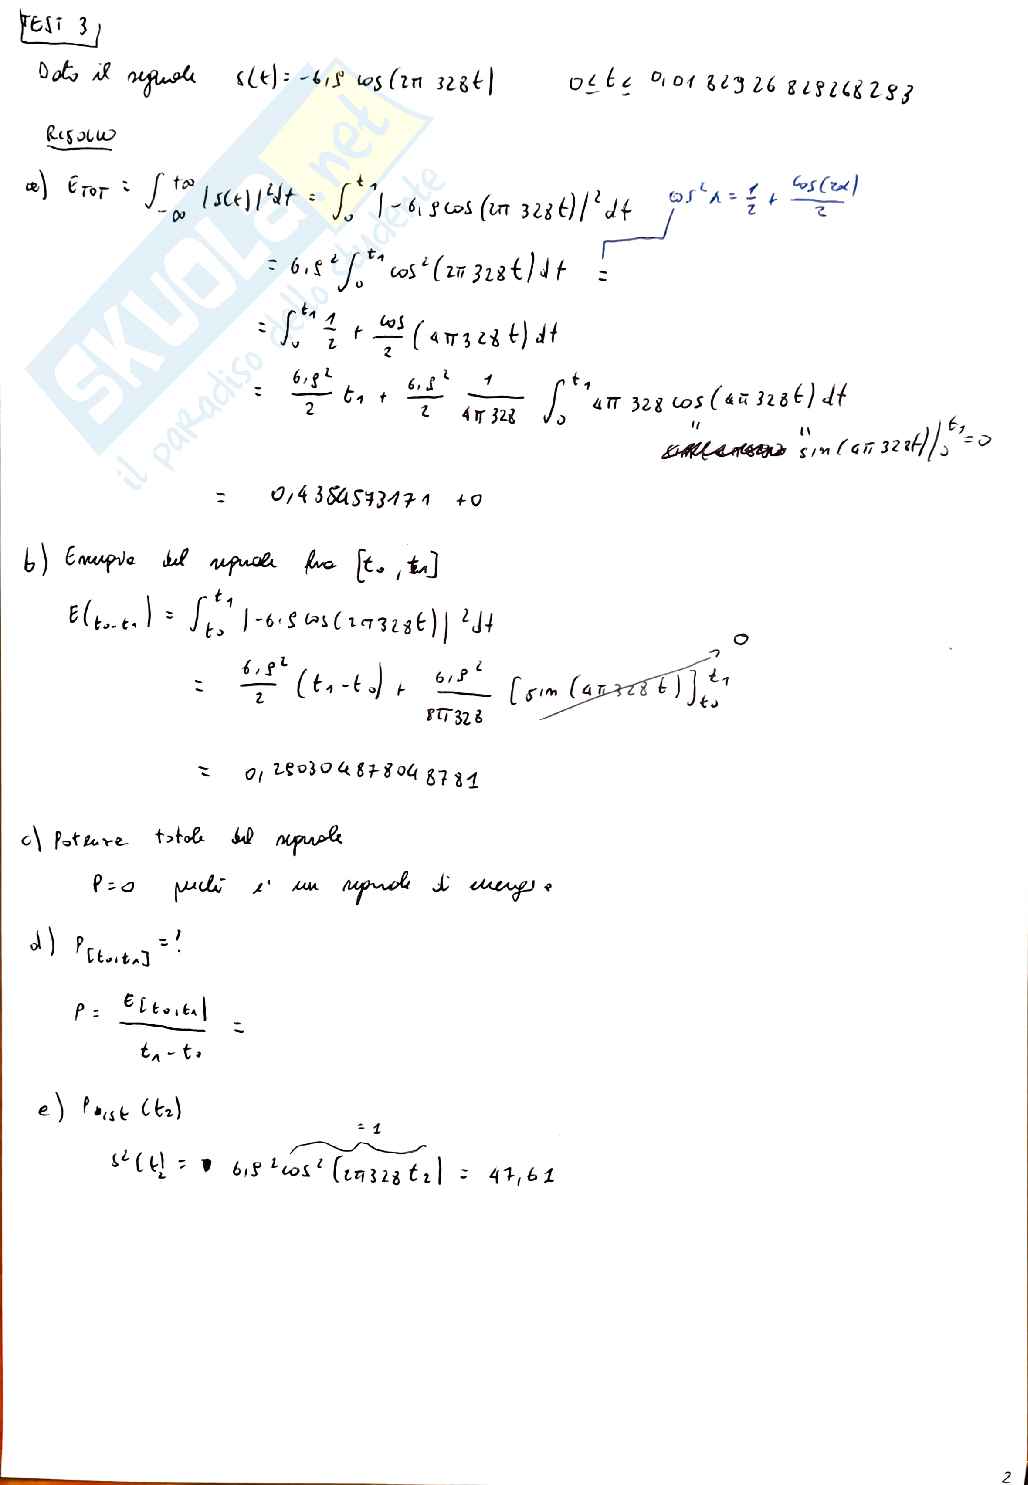 TEST 3
Dato il segnale s(t) = -6,9 cos(2π 328t) 0 ≤ t ≤ 0,0182926829268293
RISOLVO
a) E_TOT = ∫_{-∞}^{+∞} |s(t)|² dt = ∫_0^{t1} |-6,9 cos(2π 328t)|² dt cos² α = 1/2 + cos(2α)/2
= 6,9² ∫_0^{t1} cos²(2π 328t) dt =
= ∫_0^{t1} 1/2 + cos/2 (4π 328 t) dt
= 6,9²/2 t1 + 6,9²/2 1/(4π 328) ∫_0^{t1} 4π 328 cos(4π 328t) dt
" " sin(4π 328t)|_0^{t1} = 0
= 0,4354573171 + 0
b) Energia del segnale fra [t0, t1]
E(t0-t1) = ∫_{t0}^{t1} |-6,9 cos(2π 328t)|² dt
= 6,9²/2 (t1 - t0) + 6,9²/(8π 328) [sin(4π 328 t)]_{t0}^{t1} → 0
= 0,290304878048781
c) Potenza totale del segnale
P = 0 perché è un segnale di energia
d) P[t0,t1] = ?
P = E[t0,t1] / (t1 - t0) =
e) P_ist (t2)
= 1
s²(t2) = 6,9² cos²(2π 328 t2) = 47,61
2
SKUOLA.net
il paradiso dello studente